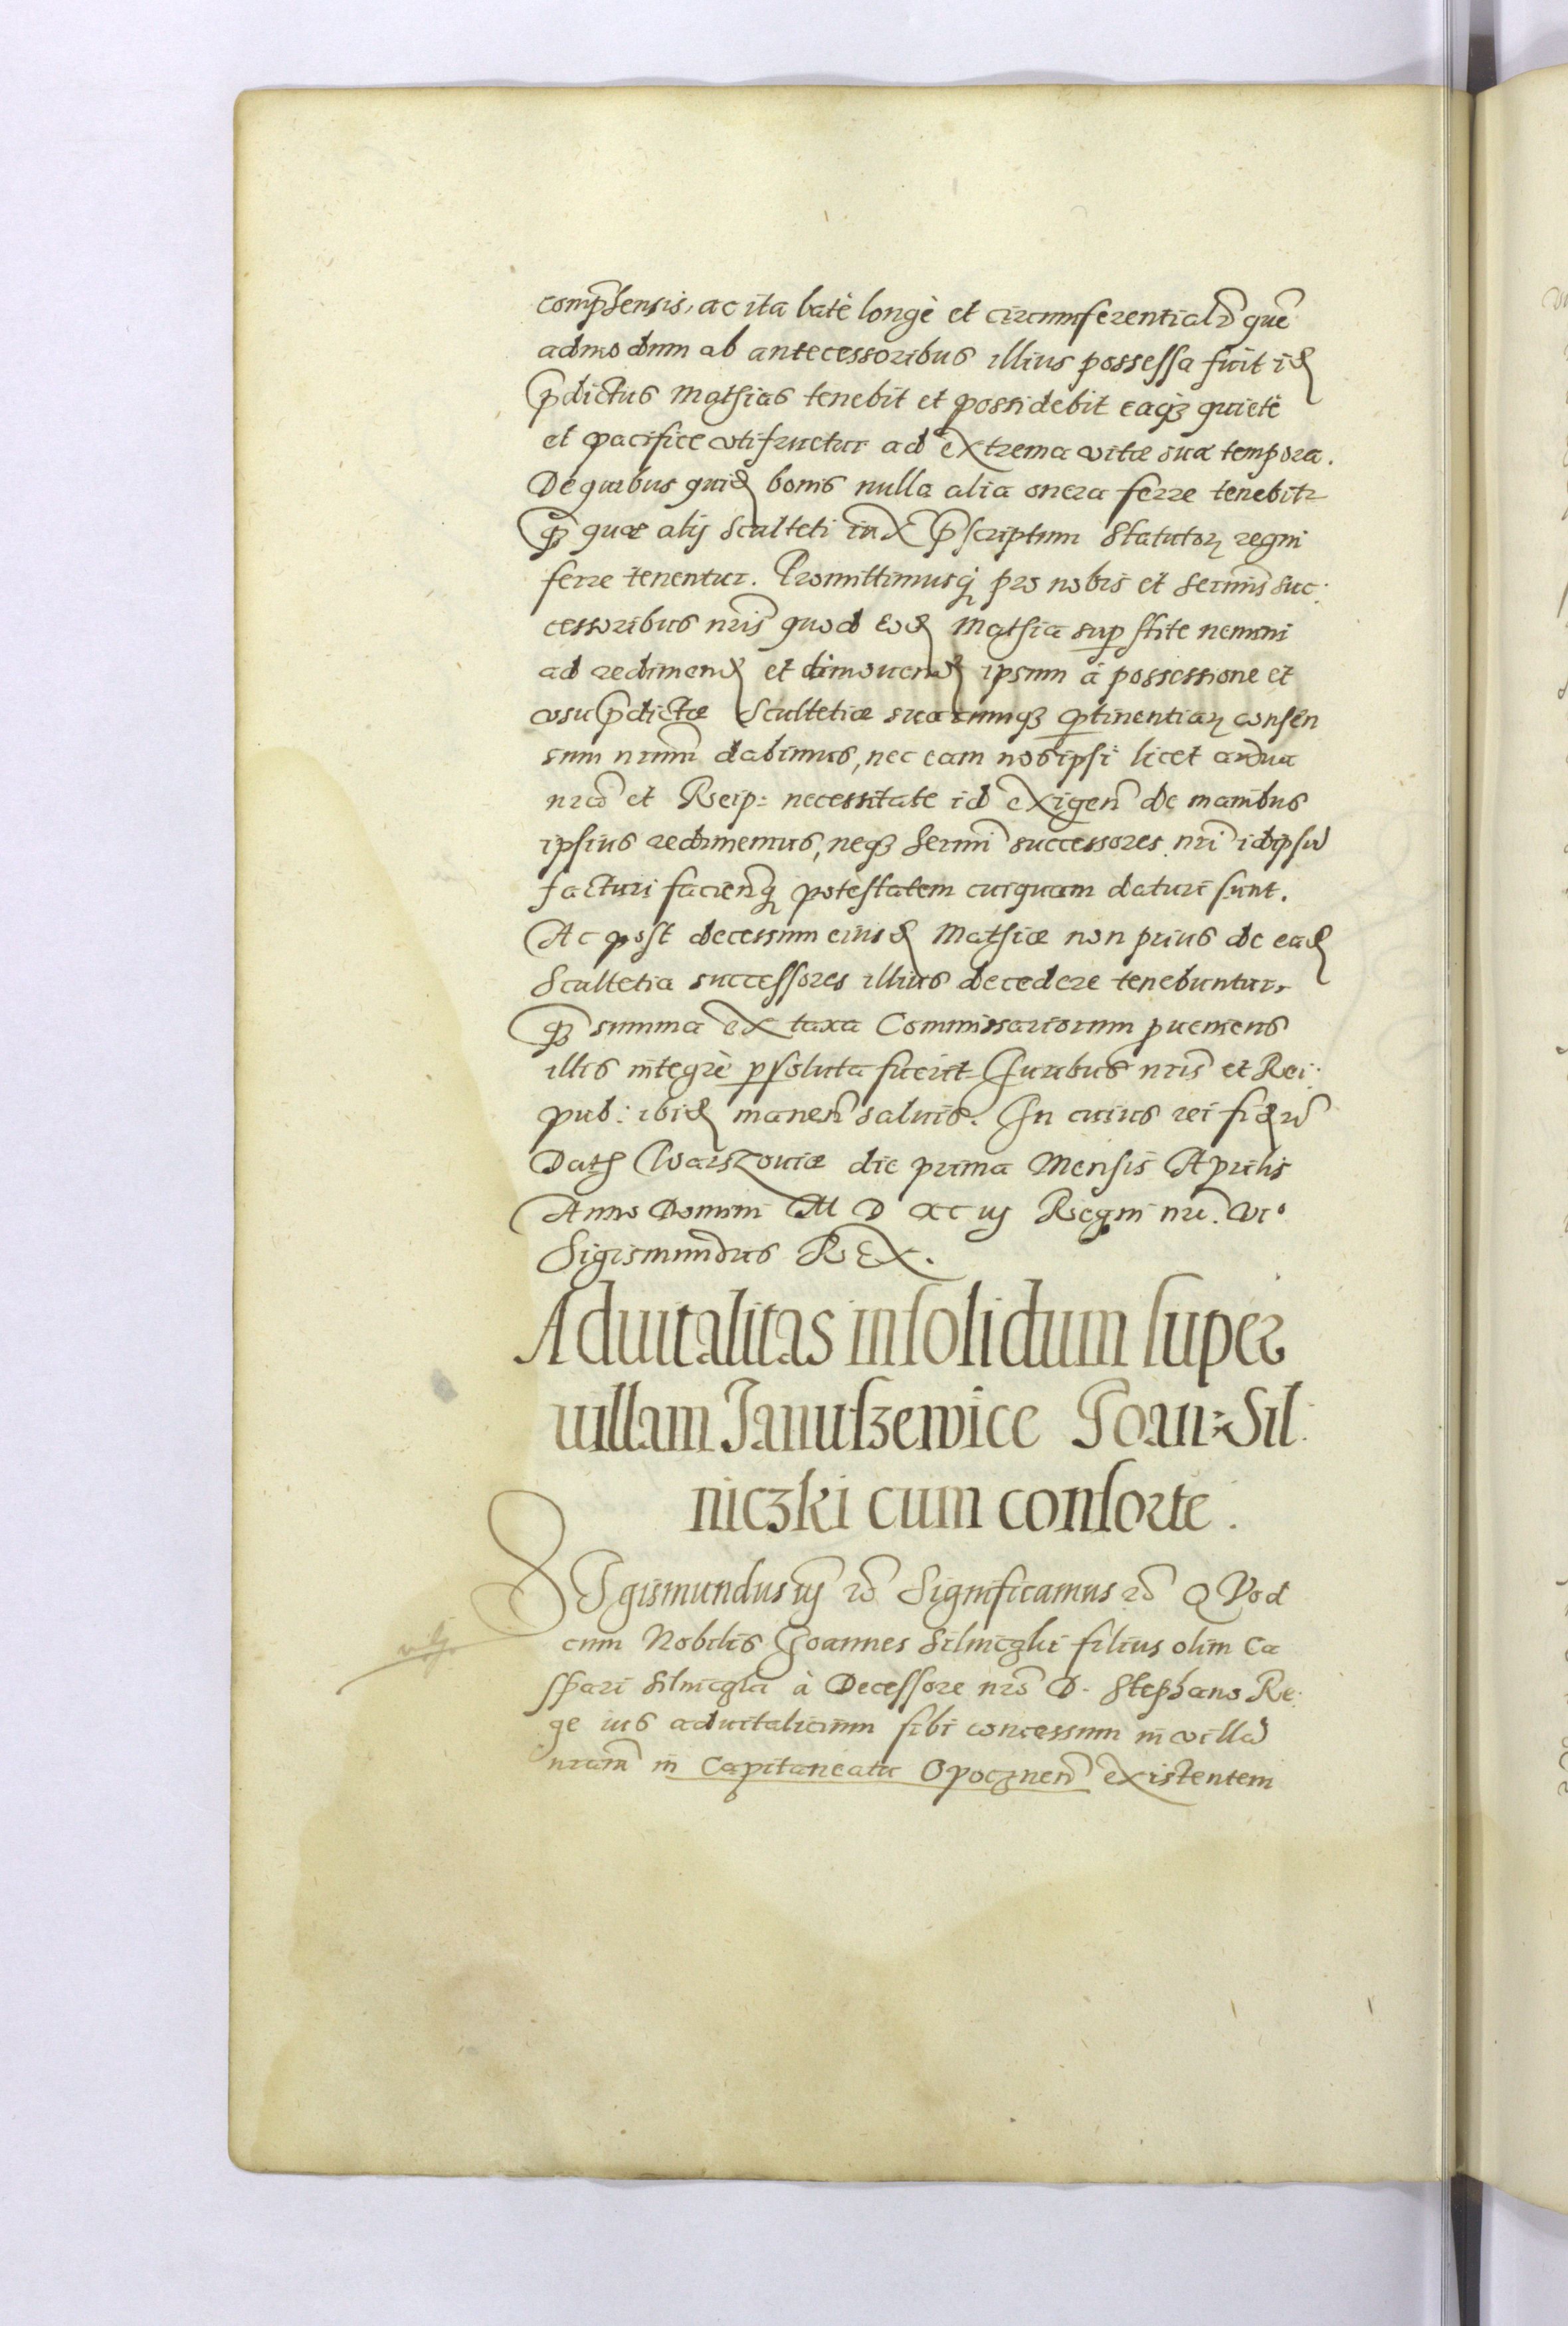 comp̃hensis, ac ita latè longè et circumferentialr̃ quẽ
admodum ab antecessoribus illius possessa fuit id
p̃dictus Mathias tenebit et possidebit eaq̃ quietè
et pacifice utifruetur ad extrema vitæ suæ tempora.
De quibus quid bonis nulla alia onera ferre tenebitr
q̃ quæ alij Sculteti iux p̃scriptum Statutor regni
ferre tenentur. Promittimusq pro nobis et Sermis suc:
cessoribus nris̃ quod eod Mathia sup stite nemini
ad redimend et dimouend ipsum à possessione et
usu p̃dictæ Scultetiæ suarumq̃ ptinentiar consen
sum nrum̃ dabimus, nec eam nos ipsi licet ardua
nr̃a et Reip: necessitate id exigeñ de manibus
ipsius redimemus, neq̃ Sermi successores nri idipsũ
facturi faciendiq potestatem cuiquam daturi sunt.
Ac post decessum eiusd Mathiæ non prius de ead
Scultetia successores illius decedere tenebuntur,
q̃ summa ex taxa Commissariorum pueniens
illis integrè psoluta fuerit Juribus nris̃ et Rei:
pub: ibid maneñ saluis. In cuius rei fid r̃
Dat Warszouiæ die prima Mensis Aprilis
Anno Domini M D XC iij Regni nri. vi°
Sigismundus REX.
Aduitalitas insolidum super
uillam Januszewice Joan: Sil:
niczki cum consorte.
SIgismundus iij r̃ Significamus r̃ QVod
cum Nobilis Joannes Silniczki filius olim Ca
spari Silniczki à Decessore nro D. Stephano Re:
ge ius aduitalicium sibi concessum in villã
nram̃ in Capitaneatu Opoczneñ existentem